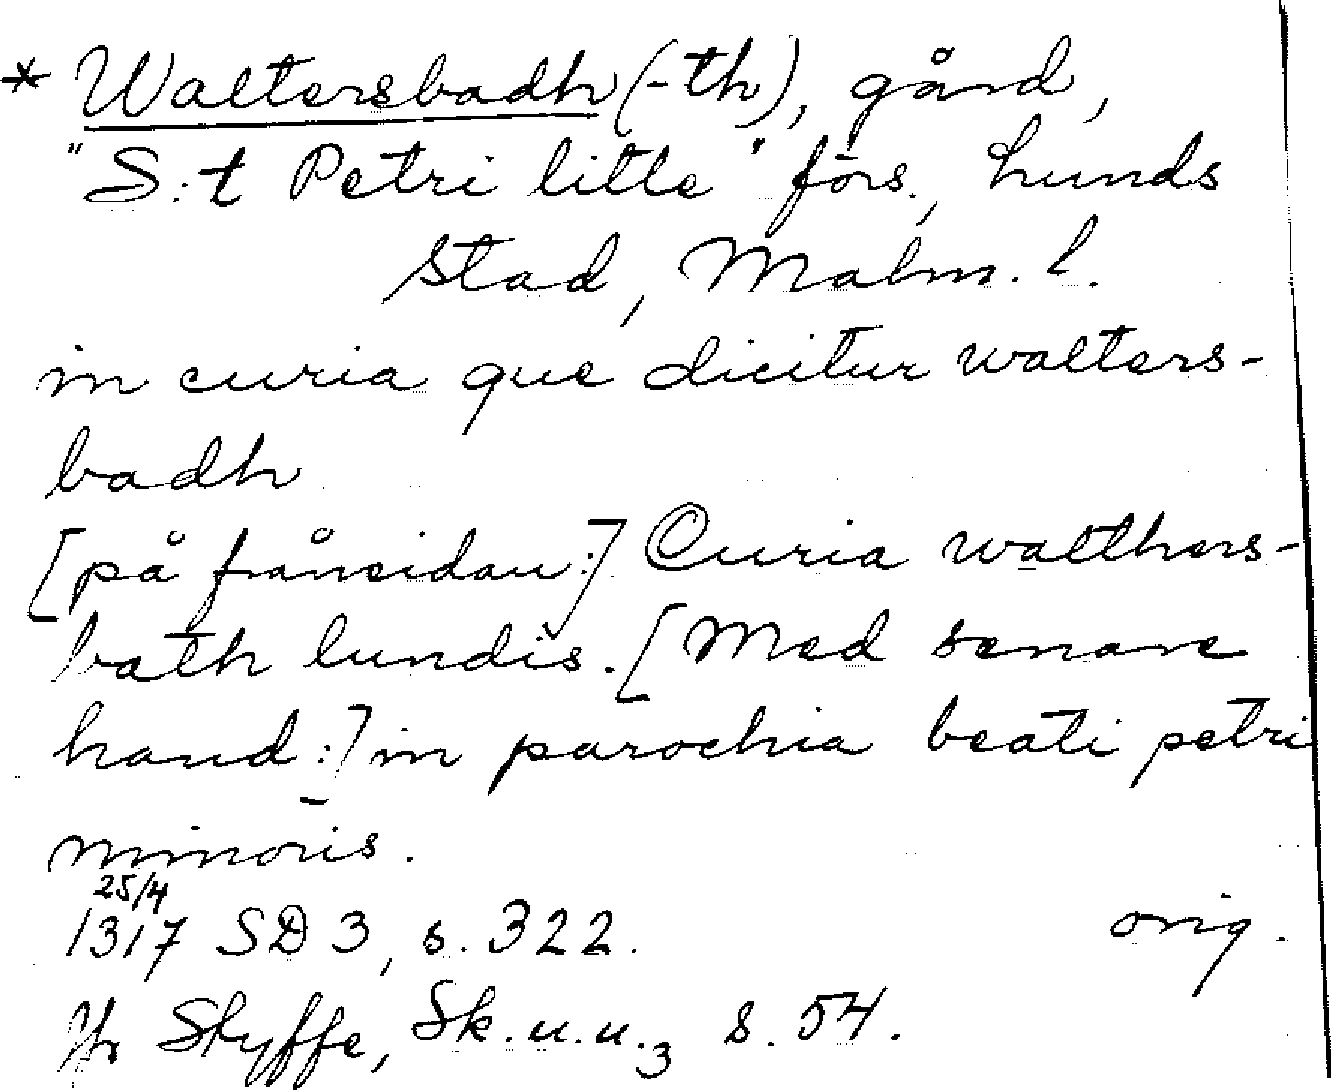 * Waltersbadh (-th), gård,
"S:t Petri lille" förs., Lunds
stad, Malm. l.
in curia que dicitur walters-
badh
[på frånsidan:] Curia walthers-
bath lundis. [Med senare
hand:] in parochia beati petri
minoris.
25/4
1317 SD 3, s. 322. orig.
Jfr Styffe, Sk.u.u.3 s. 54.